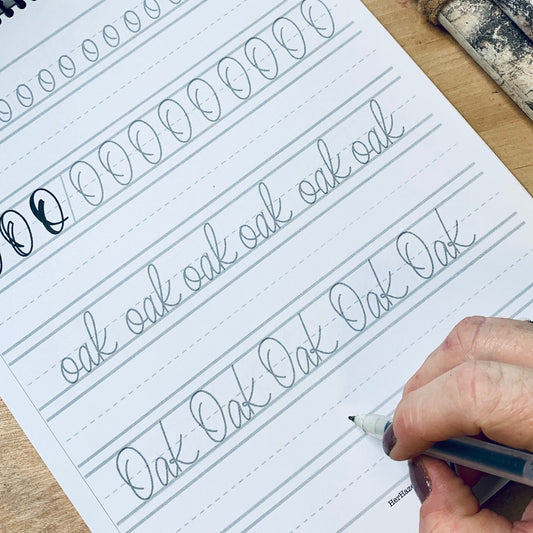 o o o o o o o o
O O O O O O O O O O O
oak oak oak oak oak oak
Oak Oak Oak Oak Oak